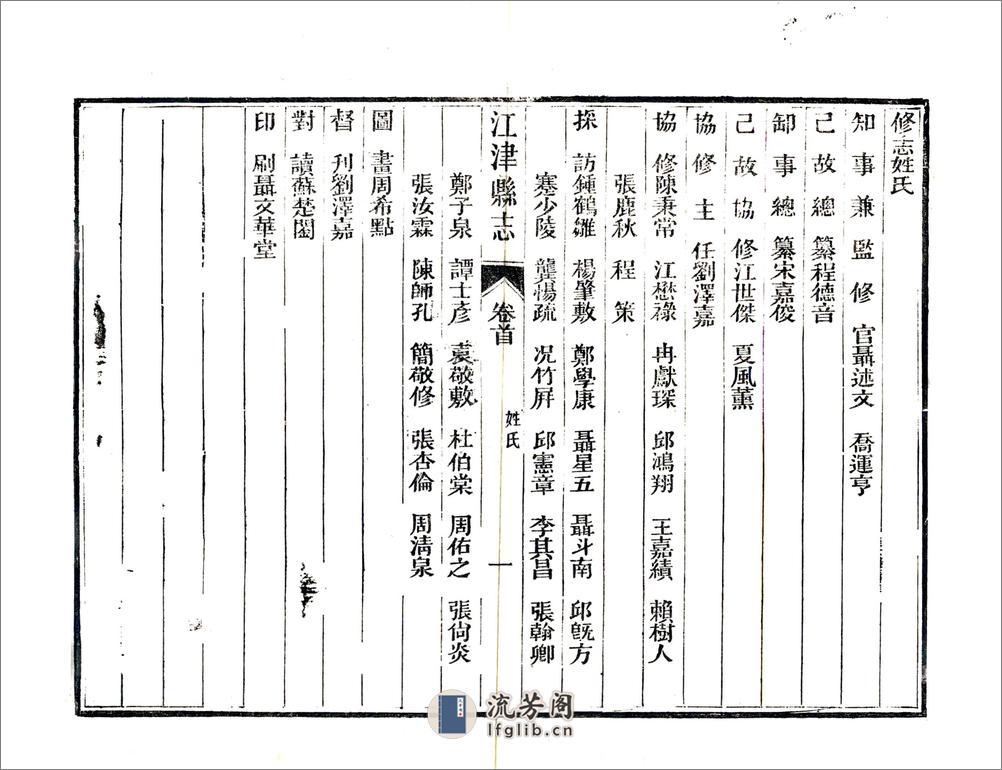 修志姓氏
知事兼監修官聶述文 喬運亨
已故總纂程德音
卸事總纂宋嘉俊
已故協修江世傑 夏風薰
協修主任劉澤嘉
協修陳秉常 江懋祿 冉獻琛 邱鴻翔 王嘉績 賴樹人
張鹿秋 程策
採訪鍾鶴雛 楊肇敷 鄭學康 聶星五 聶斗南 邱旣方
蹇少陵 龔惕疏 况竹屏 邱憲章 李其昌 張翰卿
江津縣志 卷首 姓氏 一
鄭子泉 譚士彥 袁敬敷 杜伯棠 周佑之 張尙炎
張汝霖 陳師孔 簡敬修 張杏倫 周淸泉
圖畫周希點
督刋劉澤嘉
對讀蘇楚閣
印刷聶文華堂
流芳阁
lfglib.cn